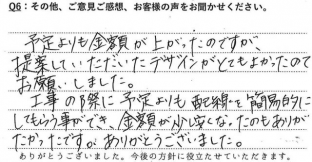 Q6：その他、ご意見ご感想、お客様の声をお聞かせください。
予定よりも金額が上がったのですが、
提案していただいたデザインがとてもよかったので
お願いしました。
工事の際に予定よりも配線も簡易的に
してもらう事ができ、金額が少し安くなったのもありが
たかったです。ありがとうございました。
ありがとうございました。今後の方針に役立たせていただきます。